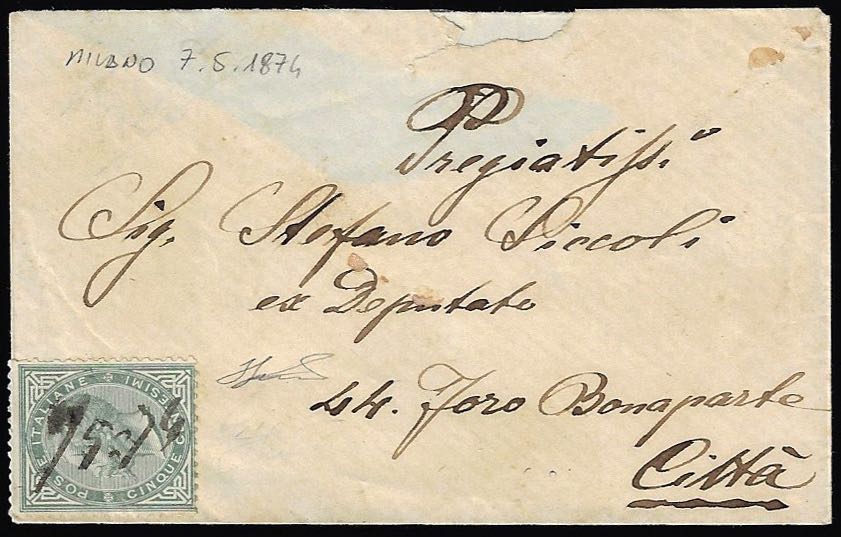 MILANO 7.5.1874
Pregiatiss.º
Sig. Stefano Piccoli
ex Deputato
44. Foro Bonaparte
Città
POSTE ITALIANE
CINQUE CENTESIMI